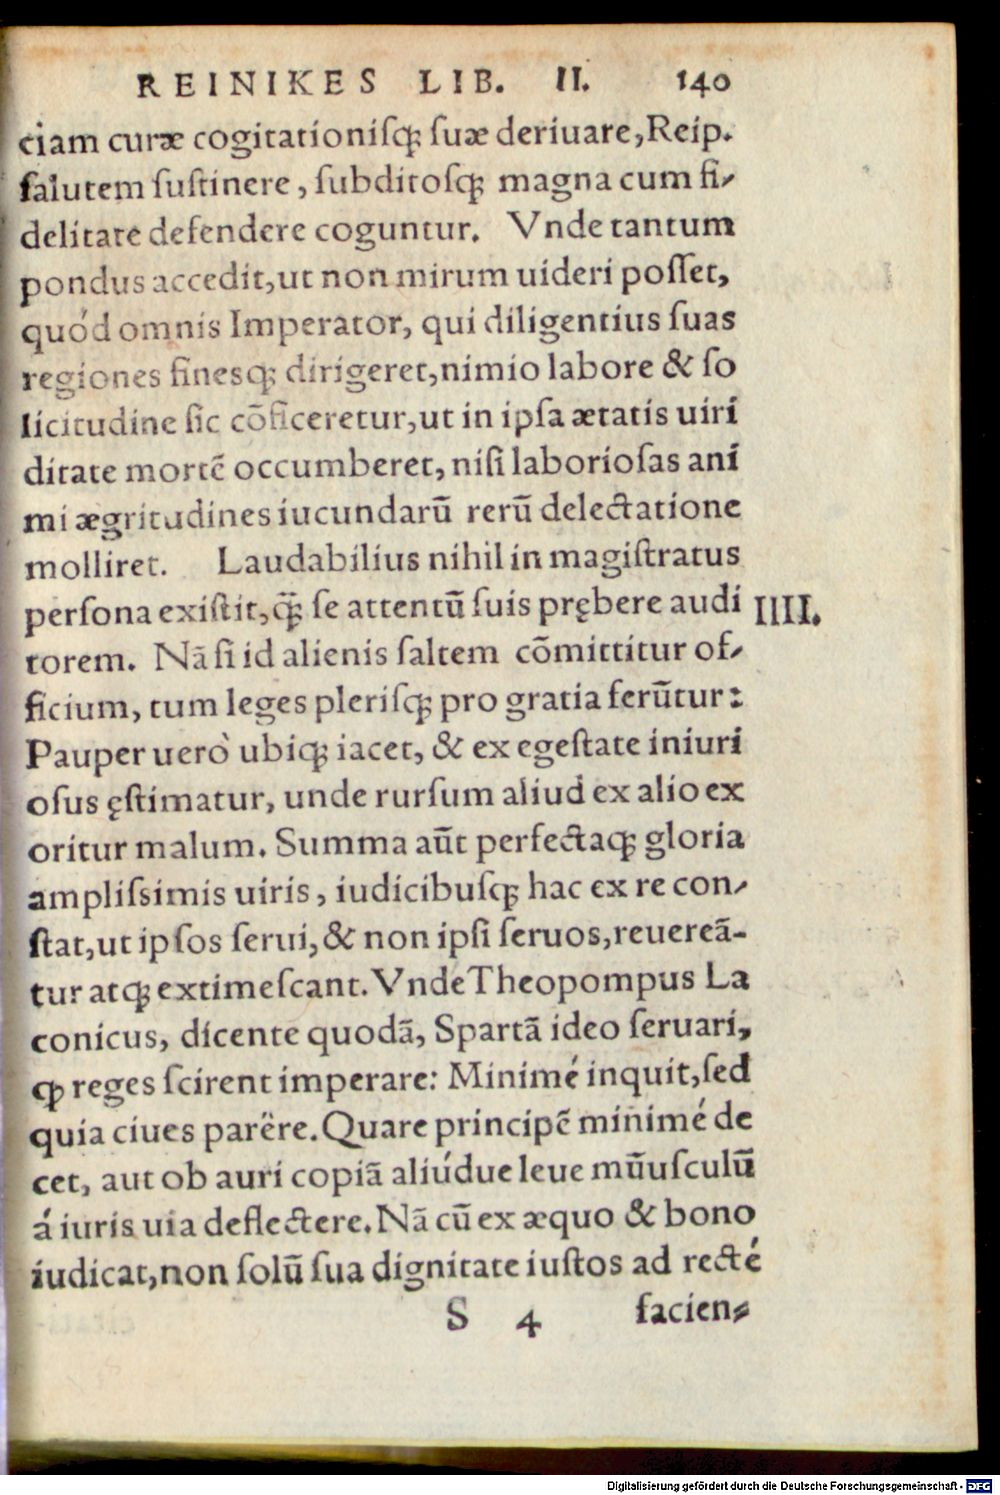 REINIKES LIB. II. 140
ciam curæ cogitationiſq́; ſuæ deriuare, Reip.
ſalutem ſuſtinere, ſubditoſq́; magna cum fi-
delitate defendere coguntur. Vnde tantum
pondus accedit, ut non mirum uideri poſſet,
quód omnis Imperator, qui diligentius ſuas
regiones finesq́; dirigeret, nimio labore & ſo
licitudine ſic cōficeretur, ut in ipſa ætatis uiri
ditate mortē occumberet, niſi laborioſas ani
mi ægritudines iucundarū rerū delectatione
molliret. Laudabilius nihil in magiſtratus
perſona exiſtit, q̃; ſe attentū ſuis prębere audi
IIII.
torem. Nā ſi id alienis ſaltem cōmittitur of-
ficium, tum leges pleriſq́; pro gratia ferūtur:
Pauper uerò ubiq́; iacet, & ex egeſtate iniuri
oſus ęſtimatur, unde rurſum aliud ex alio ex
oritur malum. Summa aūt perfectaq́; gloria
ampliſsimis uiris, iudicibuſq́; hac ex re con-
ſtat, ut ipſos ſerui, & non ipſi ſeruos, reuereā-
tur atq́; extimeſcant. Vnde Theopompus La
conicus, dicente quodā, Spartā ideo ſeruari,
ꝙ reges ſcirent imperare: Minimé inquit, ſed
quia ciues parëre. Quare principē minimé de
cet, aut ob auri copiā aliúdue leue mūuſculū
á iuris uia deflectere. Nā cū ex æquo & bono
iudicat, non ſolū ſua dignitate iuſtos ad recté
S 4 facien-
Digitalisierung gefördert durch die Deutsche Forschungsgemeinschaft - DFG